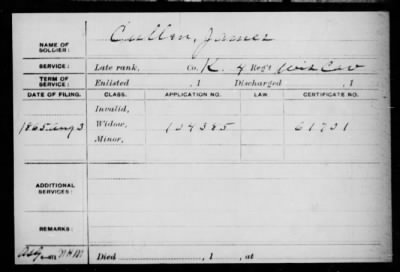 NAME OF SOLDIER: Cullen, James
SERVICE: Late rank, Co. K. 4 Reg't Wis Cav
TERM OF SERVICE: Enlisted , 1 Discharged , 1
DATE OF FILING. CLASS. APPLICATION NO. LAW. CERTIFICATE NO.
Invalid,
1865 Aug 3 Widow, 104385 61731
Minor,
ADDITIONAL SERVICES:
REMARKS:
Died , 1 , at